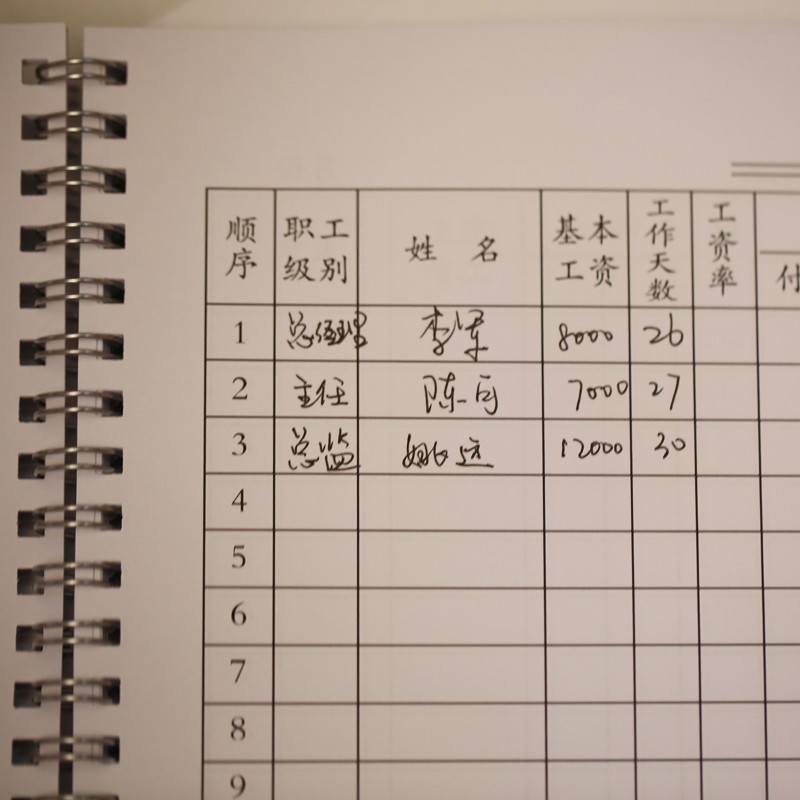 顺序 职工级别 姓 名 基本工资 工作天数 工资率 付
1 总经理 李军 8000 26
2 主任 陈一向 7000 27
3 总监 姚远 12000 30
4
5
6
7
8
9